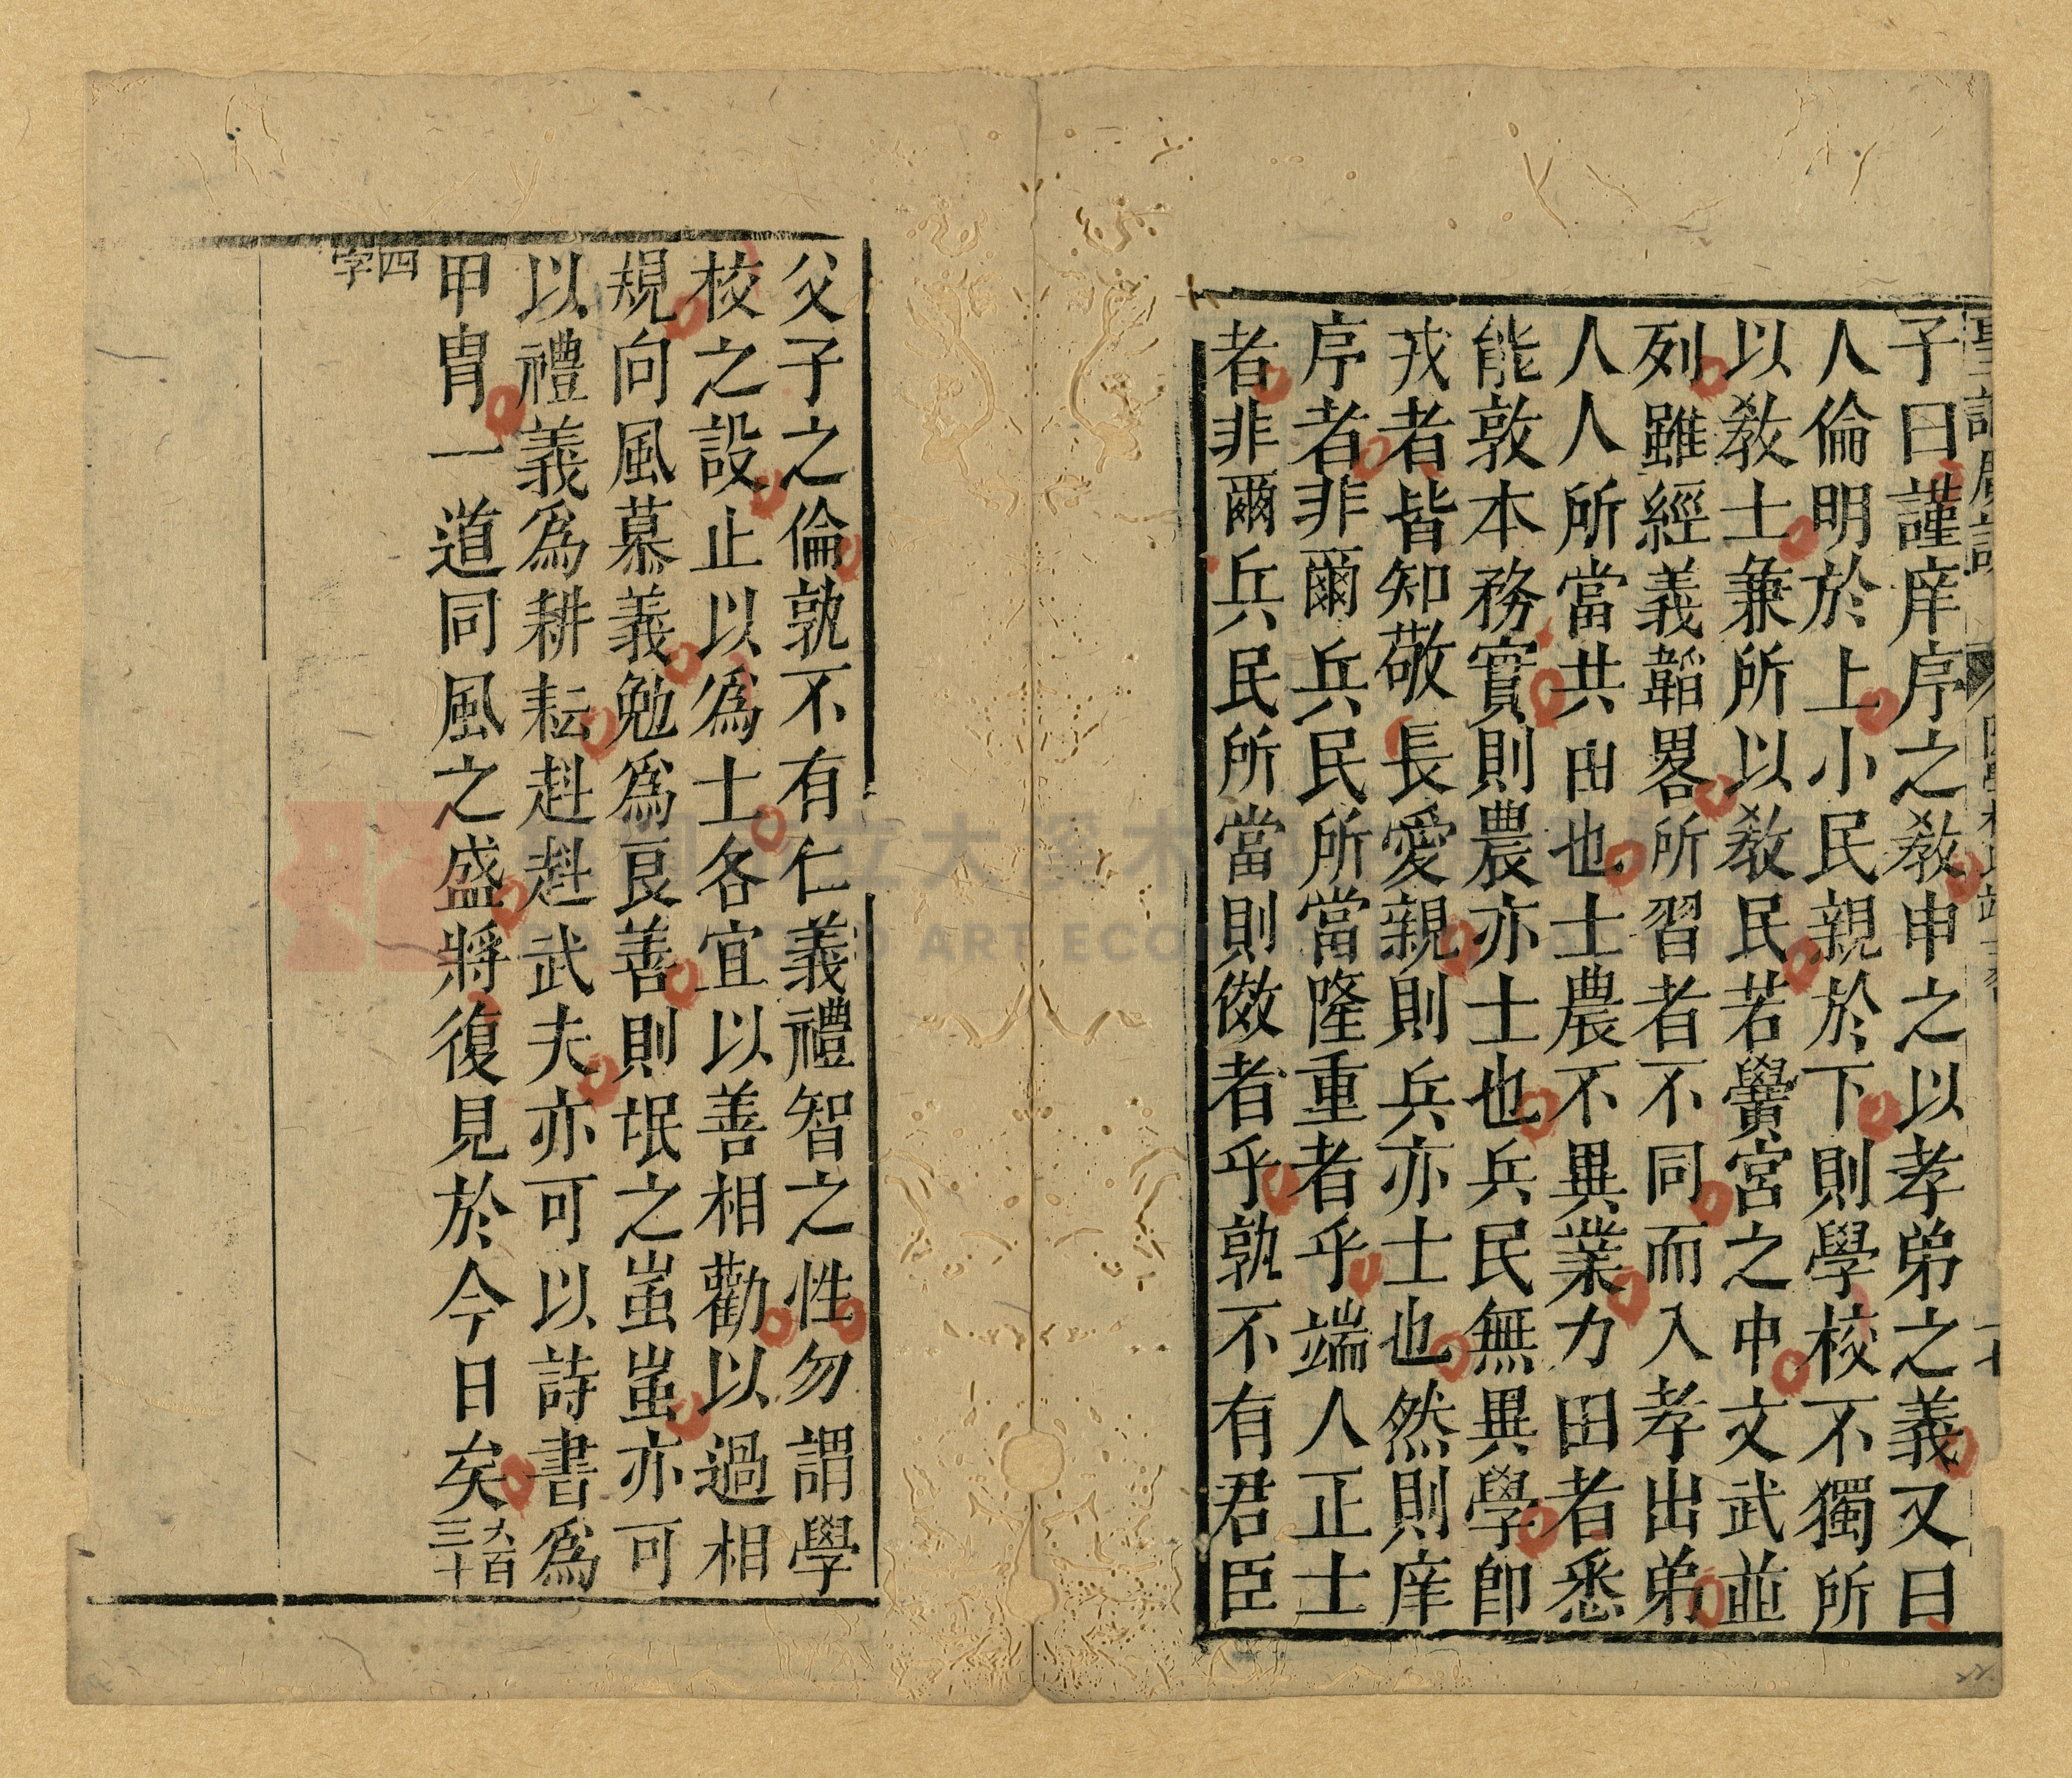 子曰謹庠序之教申之以孝弟之義又曰
人倫明於上小民親於下則學校不獨所
以教士兼所以教民若黌宮之中文武並
列雖經義韜畧所習者不同而入孝出弟
人人所當共由也士農不異業力田者悉
能敦本務實則農亦士也兵民無異學即
戎者皆知敬長愛親則兵亦士也然則庠
序者非爾兵民所當隆重者乎端人正士
者非爾兵民所當則傚者乎孰不有君臣
父子之倫孰不有仁義禮智之性勿謂學
校之設止以為士各宜以善相勸以過相
規向風慕義勉為良善則氓之蚩蚩亦可
以禮義為耕耘赳赳武夫亦可以詩書為
甲冑一道同風之盛將復見於今日矣六百三十
四字